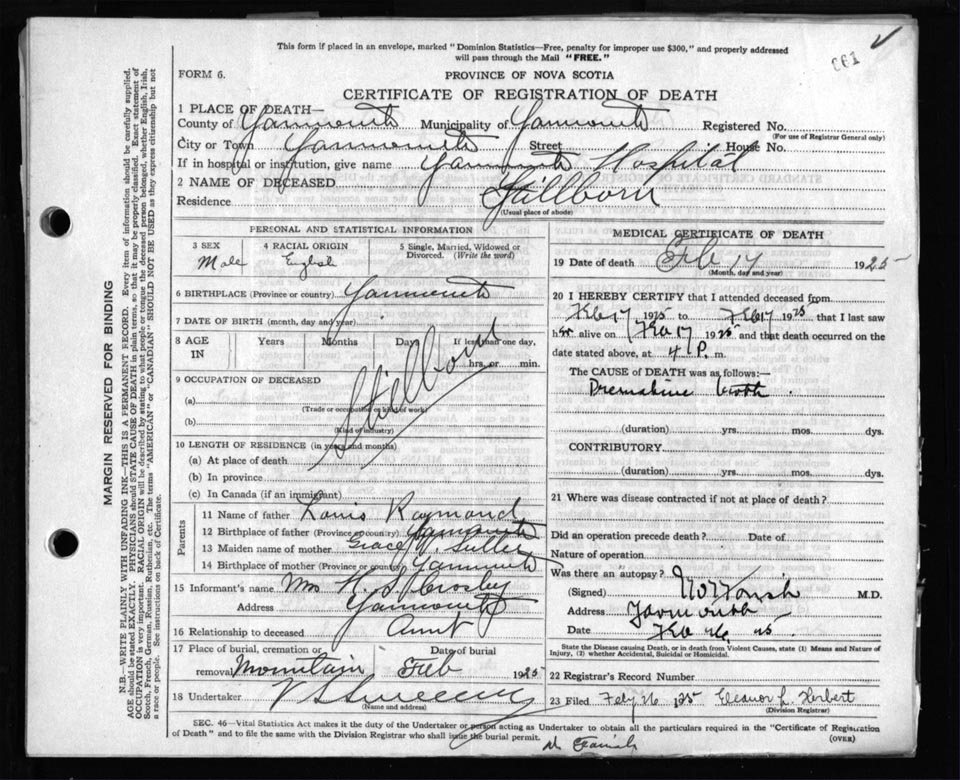 This form if placed in an envelope, marked "Dominion Statistics—Free, penalty for improper use $300," and properly addressed
will pass through the Mail "FREE."
FORM 6.
PROVINCE OF NOVA SCOTIA
CERTIFICATE OF REGISTRATION OF DEATH
1 PLACE OF DEATH—
County of Yarmouth Municipality of Yarmouth Registered No.
(For use of Registrar General only)
City or Town Yarmouth Street House No.
If in hospital or institution, give name Yarmouth Hospital
2 NAME OF DECEASED Stillborn
Residence
(Usual place of abode)
PERSONAL AND STATISTICAL INFORMATION
3 SEX 4 RACIAL ORIGIN 5 Single, Married, Widowed or Divorced. (Write the word)
Male English
6 BIRTHPLACE (Province or country) Yarmouth
7 DATE OF BIRTH (month, day and year)
8 AGE IN Years Months Days If less than one day, hrs. or min.
Stillborn
9 OCCUPATION OF DECEASED
(a)
(Trade or occupation or kind of work)
(b)
(Kind of industry)
10 LENGTH OF RESIDENCE (in years and months)
(a) At place of death
(b) In province
(c) In Canada (if an immigrant)
Parents
11 Name of father Louis Raymond
12 Birthplace of father (Province or country) Yarmouth
13 Maiden name of mother Grace
14 Birthplace of mother (Province or country) Yarmouth
15 Informant's name Mrs H. S. Crosby
Address Yarmouth
16 Relationship to deceased Aunt
17 Place of burial, cremation or removal Mountain Date of burial Feb 1925
18 Undertaker V S Sweeny
(Name and address)
MEDICAL CERTIFICATE OF DEATH
19 Date of death Feb 17 1925
(Month, day and year)
20 I HEREBY CERTIFY that I attended deceased from
Feb 17 1925 to Feb 17 1925 that I last saw
h alive on Feb 17 1925 and that death occurred on the
date stated above, at 4 P. m.
The CAUSE OF DEATH was as follows:—
Premature birth
(duration) yrs. mos. dys.
CONTRIBUTORY.
(duration) yrs. mos. dys.
21 Where was disease contracted if not at place of death?
Did an operation precede death? Date of
Nature of operation
Was there an autopsy?
(Signed) M.D.
Address Yarmouth
Date
State the Disease causing Death, or in death from Violent Causes, state (1) Means and Nature of
Injury, (2) whether Accidental, Suicidal or Homicidal.
22 Registrar's Record Number
23 Filed Feby 26 1925 Eleanor L. Herbert
(Division Registrar)
SEC. 46—Vital Statistics Act makes it the duty of the Undertaker or person acting as Undertaker to obtain all the particulars required in the "Certificate of Registration
of Death" and to file the same with the Division Registrar who shall issue the burial permit.
(OVER)
MARGIN RESERVED FOR BINDING
N.B.—WRITE PLAINLY WITH UNFADING INK—THIS IS A PERMANENT RECORD. Every item of information should be carefully supplied.
AGE should be stated EXACTLY. PHYSICIANS should STATE CAUSE OF DEATH in plain terms, so that it may be properly classified. Exact statement of
OCCUPATION is very important. RACIAL ORIGIN will be described by stating to what people or tongue the deceased person belonged, whether English, Irish,
Scotch, French, German, Russian, Ruthenian, etc. The terms "AMERICAN" or "CANADIAN" SHOULD NOT BE USED as they express citizenship but not
a race or people. See instructions on back of Certificate.